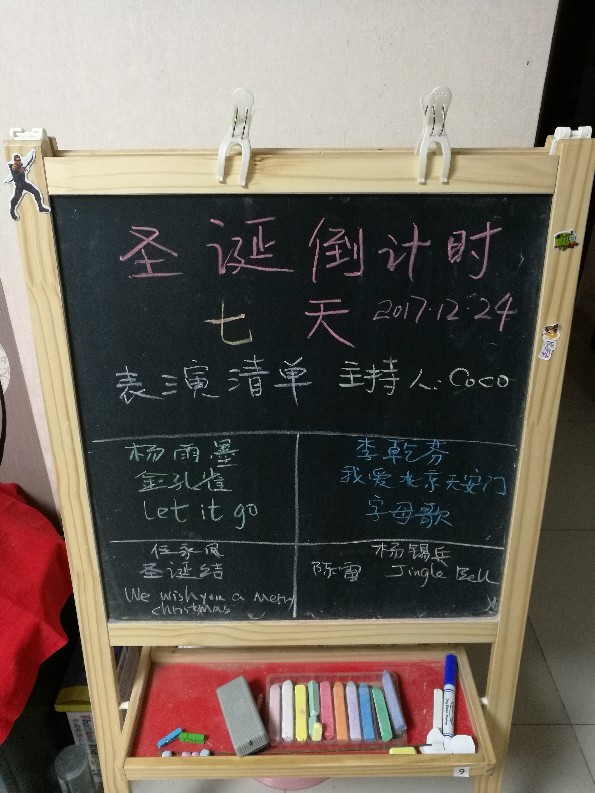 圣诞倒计时
七天 2017.12.24
表演清单 主持人: Coco
杨雨墨
金孔雀
Let it go
李乾芬
我爱北京天安门
字母歌
任家凤
圣诞结
We wish you a merry
christmas
杨锡兵
陈雷 Jingle Bell
9